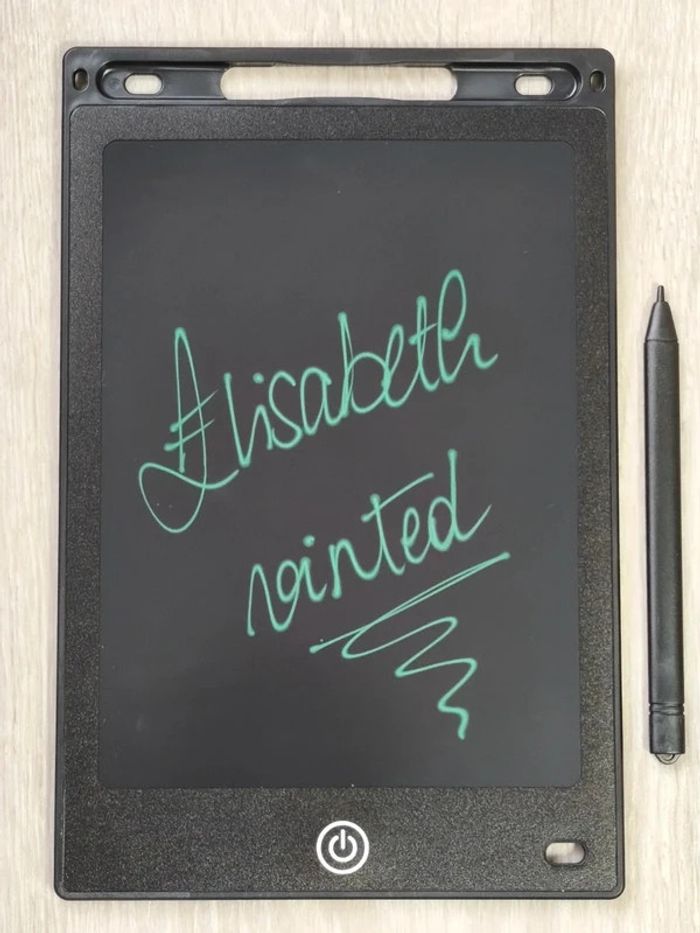 Elisabeth
vinted